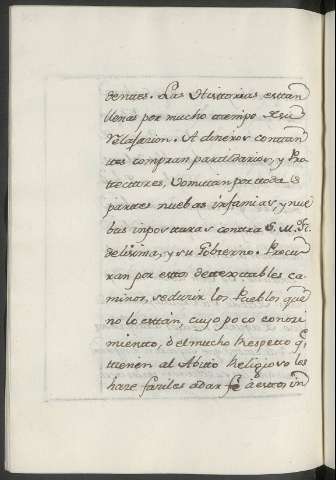 dentes. Las Historias estan
llenas por mucho tiempo de su
relajacion. A dineros contan
tes compran partidarios, y Pro
tectores, vomitan por todas
partes nuebas infamias, y nue
bas imposturas contra S. M. F.
delisima, y su Gobierno. Procu
ran por estos detextables ca
minos, seducir los Pueblos que
no lo estan, cuyo poco conozi
miento, ó el mucho Respecto q.
tienen al Abito Religioso les
haze faziles a dar fe á estos, in